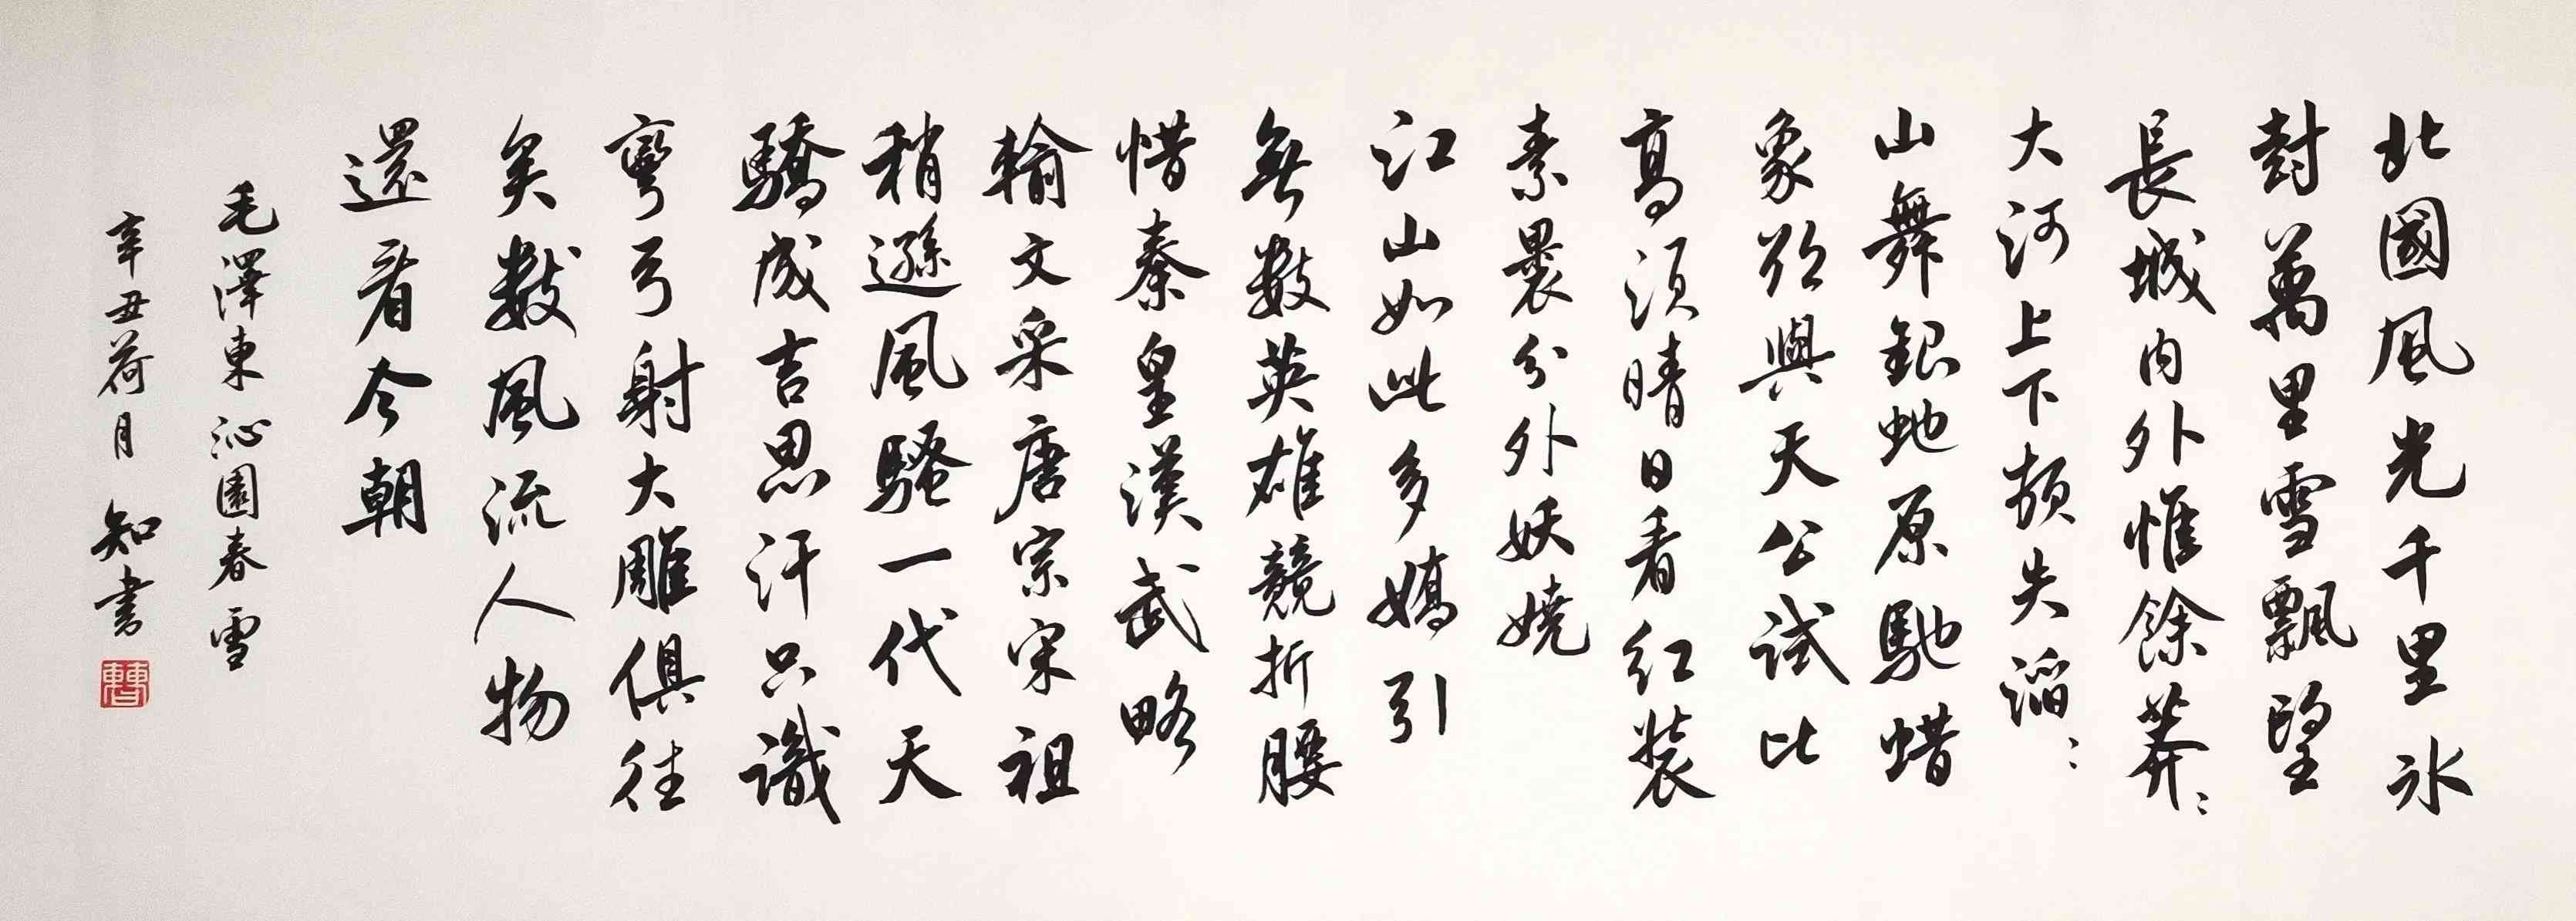 北國風光千里冰
封萬里雪飄望
長城内外惟餘莽〻
大河上下頓失滔〻
山舞銀蛇原馳蜡
象欲與天公試比
高須晴日看紅裝
素裹分外妖嬈
江山如此多嬌引
無數英雄競折腰
惜秦皇漢武略
輸文采唐宗宋祖
稍遜風騷一代天
驕成吉思汗只識
彎弓射大雕俱往
矣數風流人物
還看今朝
毛澤東沁園春雪
辛丑荷月 知書